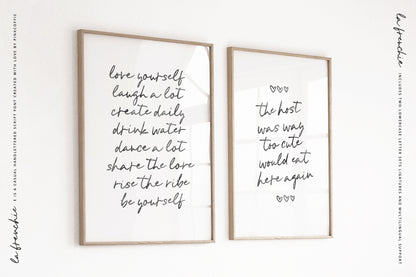 la frenchie
IS A CASUAL HANDLETTERED SCRIPT FONT CRAFTED WITH LOVE BY PINKCOFFIE
love yourself
laugh a lot
create daily
drink water
dance a lot
share the love
rise the vibe
be yourself
the host
was way
too cute
would eat
here again
la frenchie
INCLUDES TWO LOWERCASE LETTER SETS, LIGATURES AND MULTILINGUAL SUPPORT